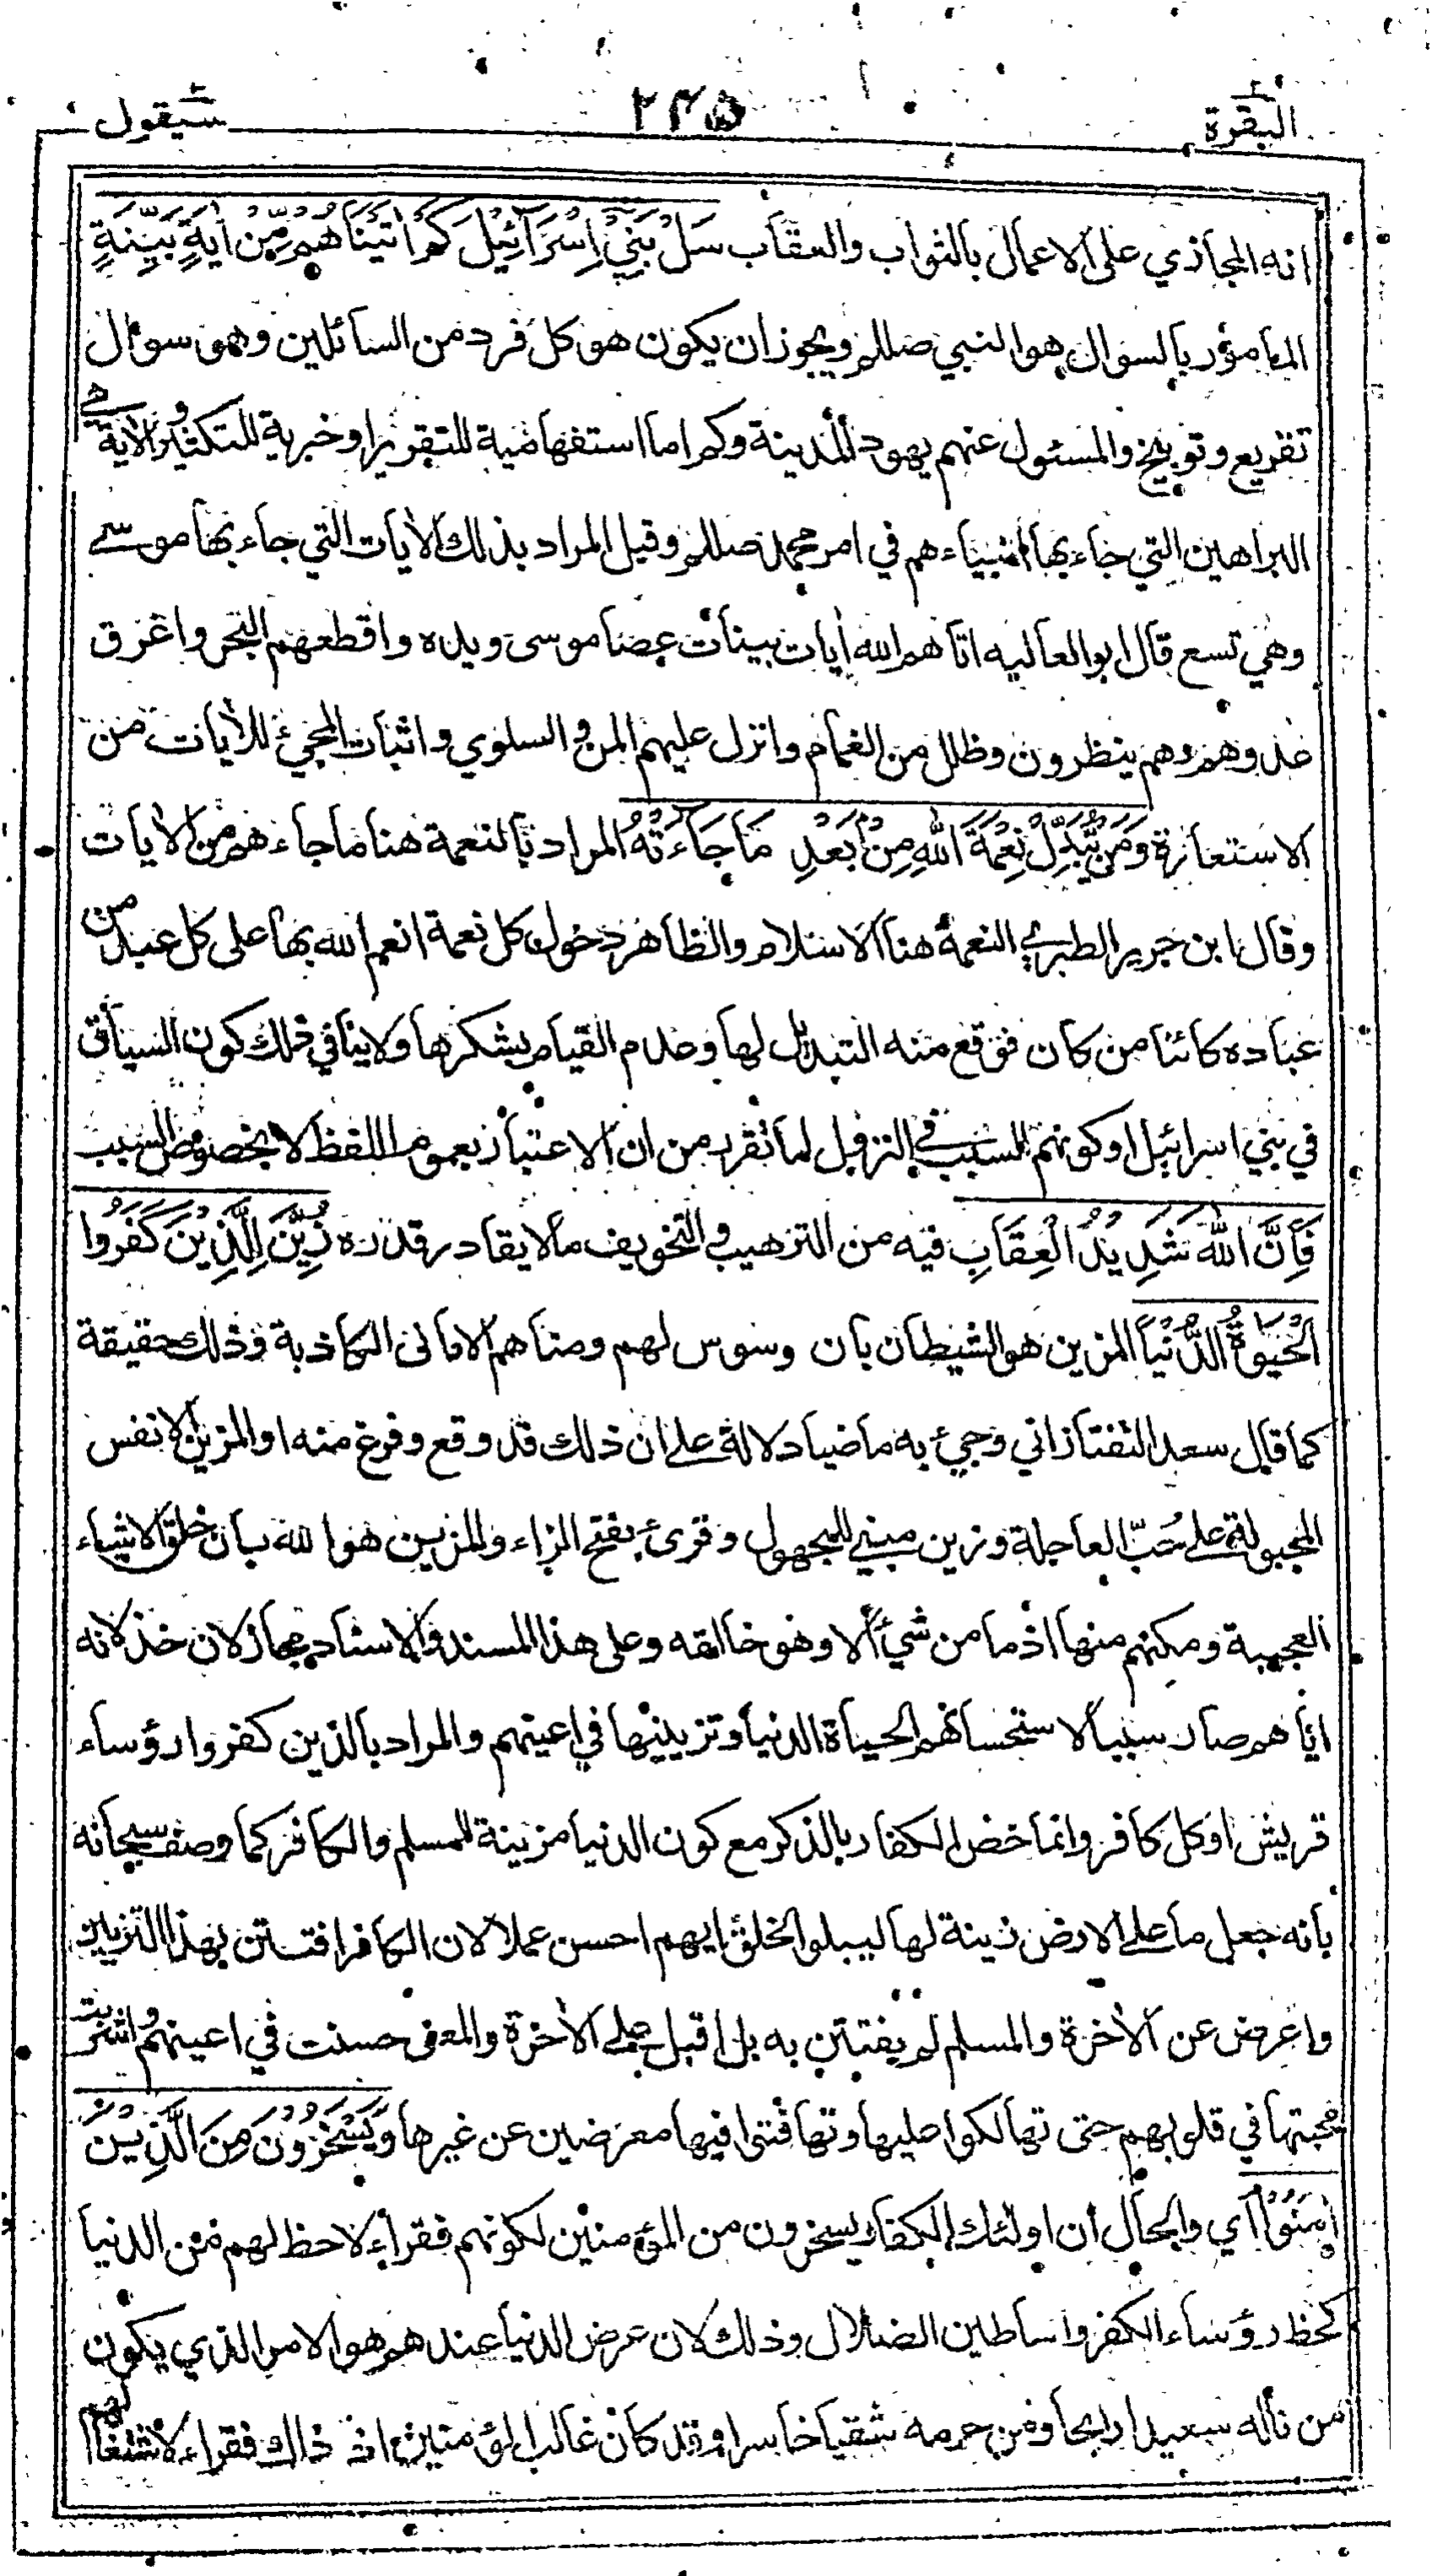 البقرة ٢٤٥ سيقول
انه المجازي على الاعمال بالثواب والعقاب سَلْ بَنِيْ اِسْرَآئِيْلَ كَمْ اٰتَيْنَاهُمْ مِّنْ اٰيَةٍ بَيِّنَةٍ
المأمور بالسوال هو النبي صللم ويجوز ان يكون هو كل فرد من السائلين وهو سوال
تقريع وتوبيخ والمسئول عنهم يهود المدينة وكم اما استفهامية للتقرير او خبرية للتكثير والأية هي
البراهين التي جاء بها انبياءهم في امر محمد صللم وقيل المراد بذلك الأيات التي جاء بها موسى
وهي تسع قال ابو العاليه اتاهم الله أيات بينات عصا موسى ويده واقطعهم البحر واغرق
عدوهم وهم ينظرون وظلل من الغمام وانزل عليهم المن والسلوي واثبات المجيئ للأيات من
الاستعارة وَمَنْ يُّبَدِّلْ نِعْمَةَ اللهِ مِنْ بَعْدِ مَا جَاءَتْهُ المراد بالنعمة هنا ما جاءهم من الأيات
وقال ابن جرير الطبري النعمة هنا الاسلام والظاهر دخول كل نعمة انعم الله بها على كل عبد من
عباده كائنا من كان فوقع منه التبديل لها وعدم القيام بشكرها ولا ينافي ذلك كون السياق
في بني اسرائيل او كونهم السبب في النزول لما تقرر من ان الاعتبار بعموم اللفظ لا بخصوص السبب
فَاِنَّ اللهَ شَدِيْدُ الْعِقَابِ فيه من الترهيب والتخويف مالا يقادر قدره زُيِّنَ لِلَّذِيْنَ كَفَرُوا
الْحَيٰوةُ الدُّنْيَا المزين هو الشيطان بان وسوس لهم ومناهم الاماني الكاذبة وذلك حقيقة
كما قال سعد التفتازاني وجيئ به ماضيا دلالة على ان ذلك قد وقع وفرغ منه او المزين الانفس
المجبولة على حُبّ العاجلة وزين مبني للمجهول وقرئ بفتح الزاء والمزين هو الله بان خلق الاشياء
العجيبة ومكنهم منها اذ ما من شيئ الا وهو خالقه وعلى هذا المسند والاسناد مجاز لان خذلانه
اياهم صار سببا لاستحسانهم الحياة الدنيا وتزيينها في اعينهم والمراد بالذين كفروا رؤساء
قريش او كل كافر وانما خص الكفار بالذكر مع كون الدنيا مزينة للمسلم والكافر كما وصف سبحانه
بانه جعل ما على الارض زينة لها ليبلو الخلق ايهم احسن عملا لان الكافر افتتن بهذا التزيين
واعرض عن الأخرة والمسلم لم يفتتن به بل اقبل على الأخرة والمعنى حسنت في اعينهم واشربت
محبتها في قلوبهم حتى تهالكوا عليها وتهافتوا فيها معرضين عن غيرها وَيَسْخَرُوْنَ مِنَ الَّذِيْنَ
اٰمَنُوْا اي والحال أن اولئك الكفار يسخرون من المؤمنين لكونهم فقراء لاحظ لهم من الدنيا
كحظ رؤساء الكفر واساطين الضلال وذلك لان عرض الدنيا عندهم هو الامر الذي يكون
من ناله سعيدا رابحا ومن حرمه شقيا خاسرا وقد كان غالب المؤمنين اذ ذاك فقراء لاشتغالهم